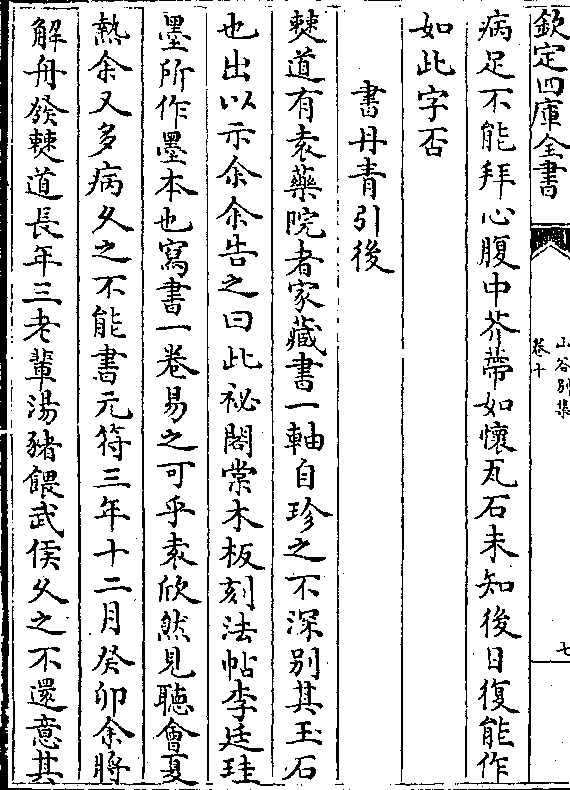 欽定四庫全書
山谷別集
卷十
七
病足不能拜心腹中芥蔕如懷瓦石未知後日復能作
如此字否
書丹青引後
僰道有袁藥院者家藏書一軸自珍之不深别其玉石
也出以示余余告之曰此祕閣棠木板刻法帖李廷珪
墨所作墨本也寫書一卷易之可乎袁欣然見聽會夏
熱余又多病久之不能書元符三年十二月癸卯余將
解舟發僰道長年三老輩湯豬餵武侯久之不還意其